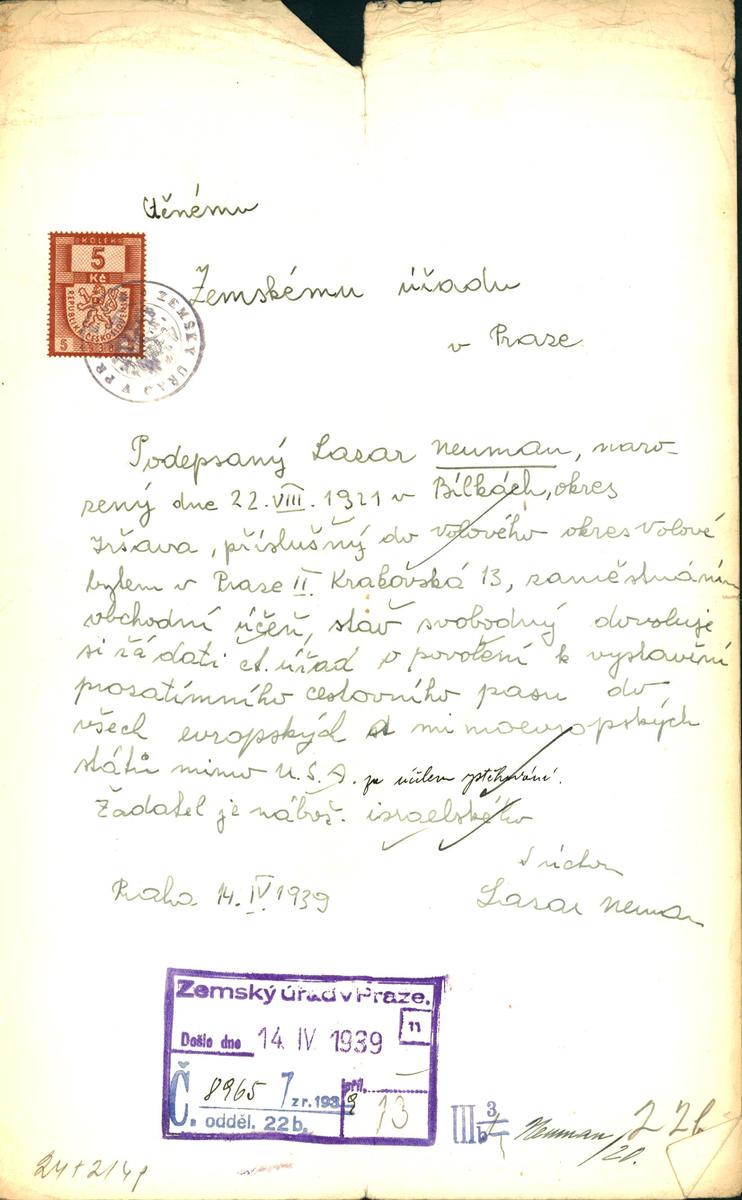 Ctěnému
KOLEK
5
Kč
REPUBLIKA ČESKOSLOVENSKÁ
5 1938
ZEMSKÝ ÚŘAD V PR
Zemskému úřadu
v Praze
Podepsaný Lazar Neuman, naro-
zený dne 22. VIII. 1921 v Bílkách, okres
Iršava, příslušný do Volového okres Volové
bytem v Praze II. Krakovská 13, zaměstnáním
obchodní účeň, stav svobodný dovoluje
si žádati ct. úřad o povolení k vystavění
prozatímního cestovního pasu do
všech evropských a mimoevropských
států mimo U.S.A. za účelem vystěhování.
Žadatel je nábož. israelského
S úctou
Praha 14. IV. 1939
Lazar Neuman
Zemský úřad v Praze.
11
Došlo dne 14 IV 1939
Č. 8965 7 z r. 1939
příl.
odděl. 22b.
13
III 3
b
Neuman
/20.
22b
24+214